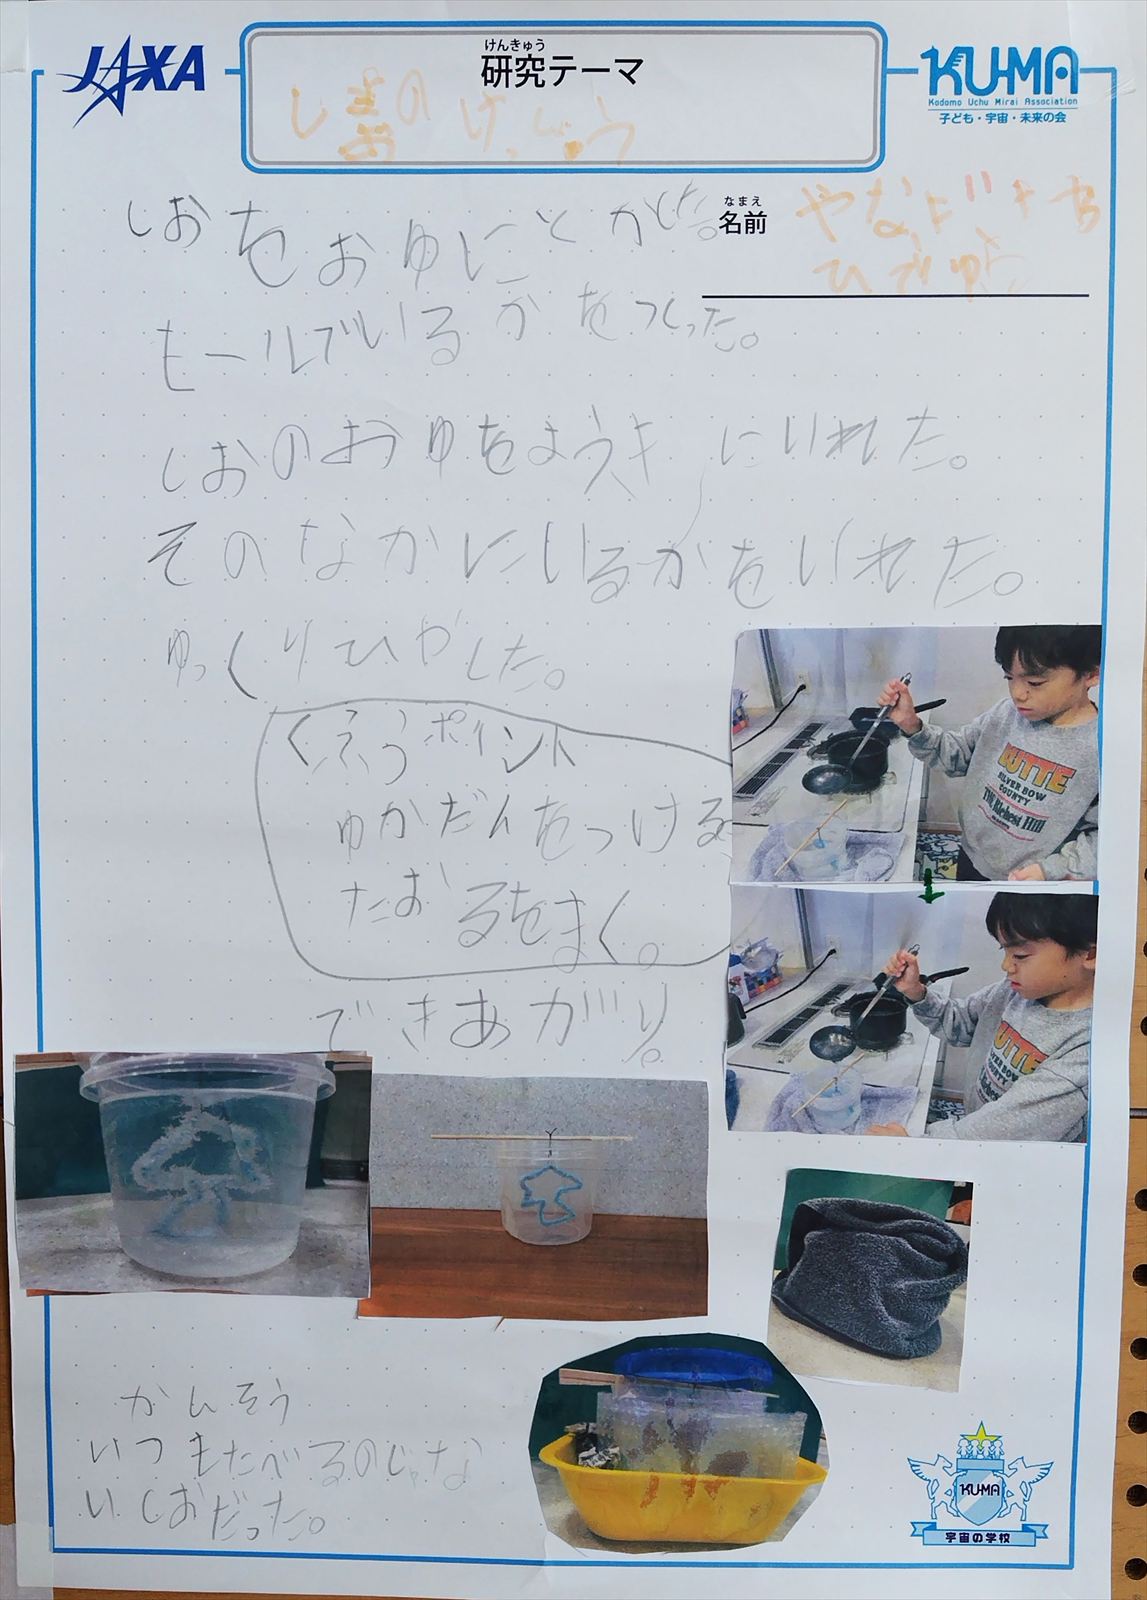 JAXA
けんきゅう
研究テーマ
KU-MA
Kodomo Uchu Mirai Association
子ども・宇宙・未来の会
しおのけっしょう
なまえ
名前
ひでゆき
しおをおゆにとかした。
モールでいるかをつくった。
しおのおゆをようきにいれた。
そのなかにいるかをいれた。
ゆっくりひやした。
くふうポイント
ゆかだんをつける
たおるをまく。
できあがり。
BUTTE
SILVER BOW
COUNTY
The Richest Hill
BUTTE
SILVER BOW
COUNTY
かんそう
いつもたべるのじゃな
いしおだった。
KU-MA
宇宙の学校